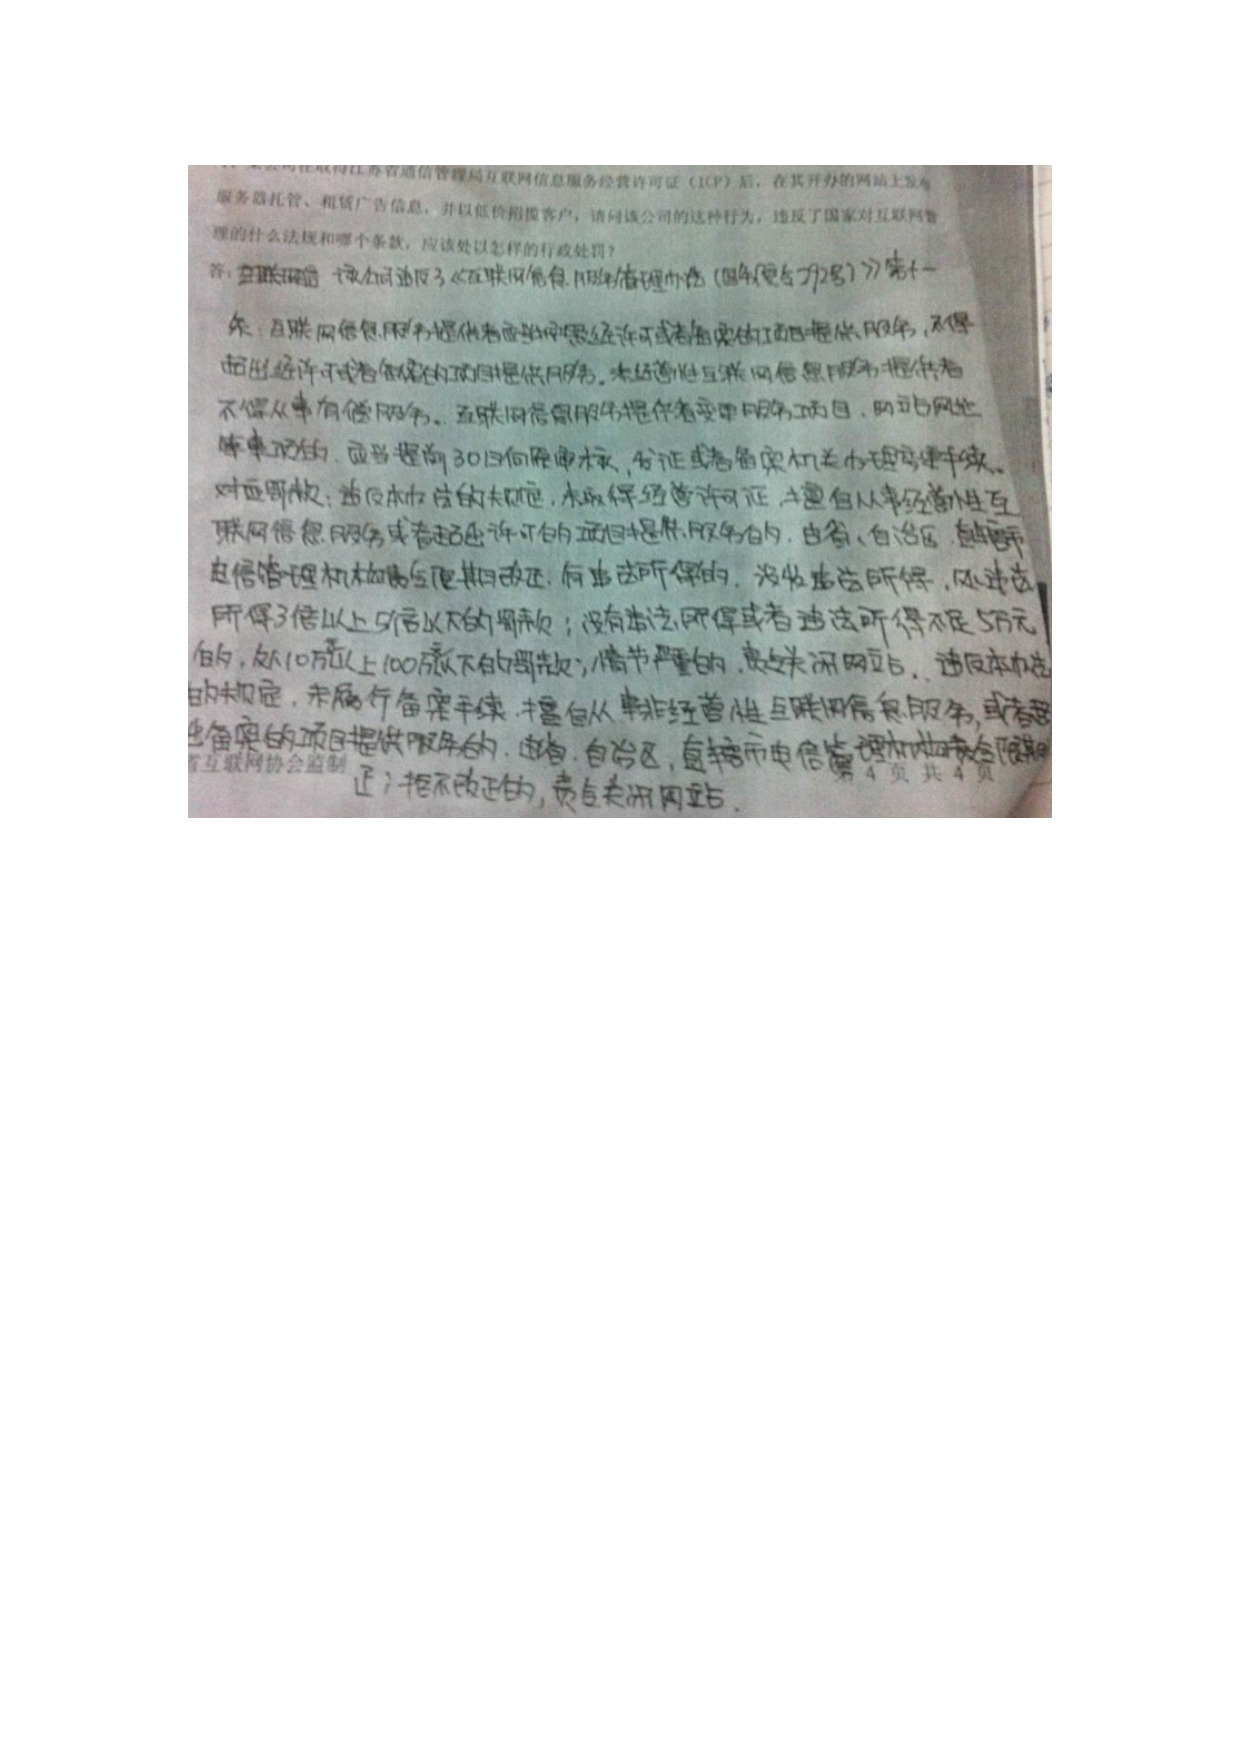 某公司在取得江苏省通信管理局互联网信息服务经营许可证（ICP）后，在其开办的网站上发布
服务器托管、租赁广告信息，并以低价招揽客户，请问该公司的这种行为，违反了国家对互联网管
理的什么法规和哪个条款，应该处以怎样的行政处罚？
答：该公司违反了《互联网信息服务管理办法（国务院令292号）》第十一
条：互联网信息服务提供者应当按照经许可或者备案的项目提供服务，不得
超出经许可或者备案的项目提供服务。非经营性互联网信息服务提供者
不得从事有偿服务。互联网信息服务提供者变更服务项目、网站网址
等事项的，应当提前30日向原审核、发证或者备案机关办理变更手续。
对应罚款：违反本办法的规定，未取得经营许可证，擅自从事经营性互
联网信息服务或者超出许可的项目提供服务的，由省、自治区、直辖市
电信管理机构责令限期改正，有违法所得的，没收违法所得，处违法
所得3倍以上5倍以下的罚款；没有违法所得或者违法所得不足5万元
的，处10万元以上100万元以下的罚款；情节严重的，责令关闭网站。违反本办法
的规定，未履行备案手续，擅自从事非经营性互联网信息服务，或者超
出备案的项目提供服务的，由省、自治区、直辖市电信管理机构责令限期
省互联网协会监制 第 4 页 共 4 页
正；拒不改正的，责令关闭网站。